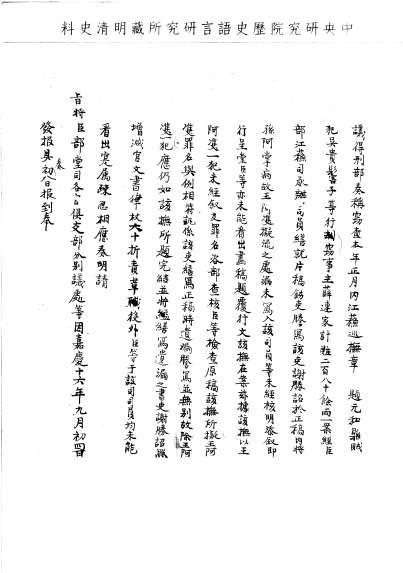 中央研究院歷史語言研究所藏明清史料
議得刑部奏稱竊查本年正月內江蘇巡撫章 題元和縣賊
犯吳貴彩等子等行竊事主薛連家計贓二百八十餘兩一案經臣
部江蘇司承辦司員繕就片稿飭吏謄寫該吏謝勝詔於正稿內將
孫阿掌病故王阿進擬流之處漏未寫入該司員等未經核明率即
行呈堂臣等亦未能看出畫稿題覆行文該撫在案茲據該撫以王
阿進一犯未經敘及罪名咨部查核臣等檢查原稿該撫所擬王阿
進罪名與例相符祇係該吏繕寫正稿時遺漏謄寫並無別故除王阿
進一犯應仍如該撫所題完結並將繕寫遺漏之書吏謝勝詔照
增減官文書律杖六十折責革職役外臣等于該司司員均未能
看出實屬疎忽相應奏明請
旨將臣部堂司各官俱交部分別議處等因嘉慶十六年九月初四日
發報具初八日報到奉